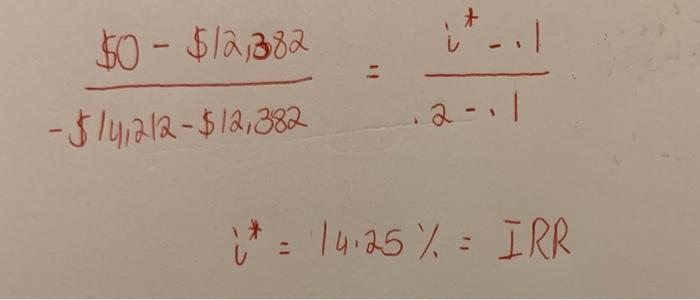 $0 - $12,382
-$14,212-$12,382
=
i* - .1
.2 - .1
i* = 14.25 % = IRR